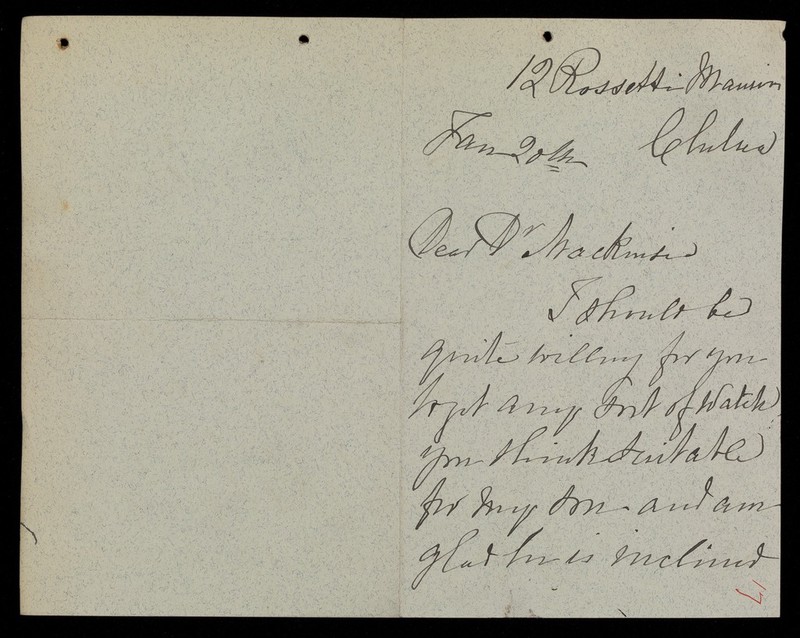 12 Rossetti Mansions
Jan 20th Chelsea
Dear Dr Mackinsie
I should be
quite willing for you
to get any sort of watch
you think suitable
for my son - and am
glad he is inclined
17